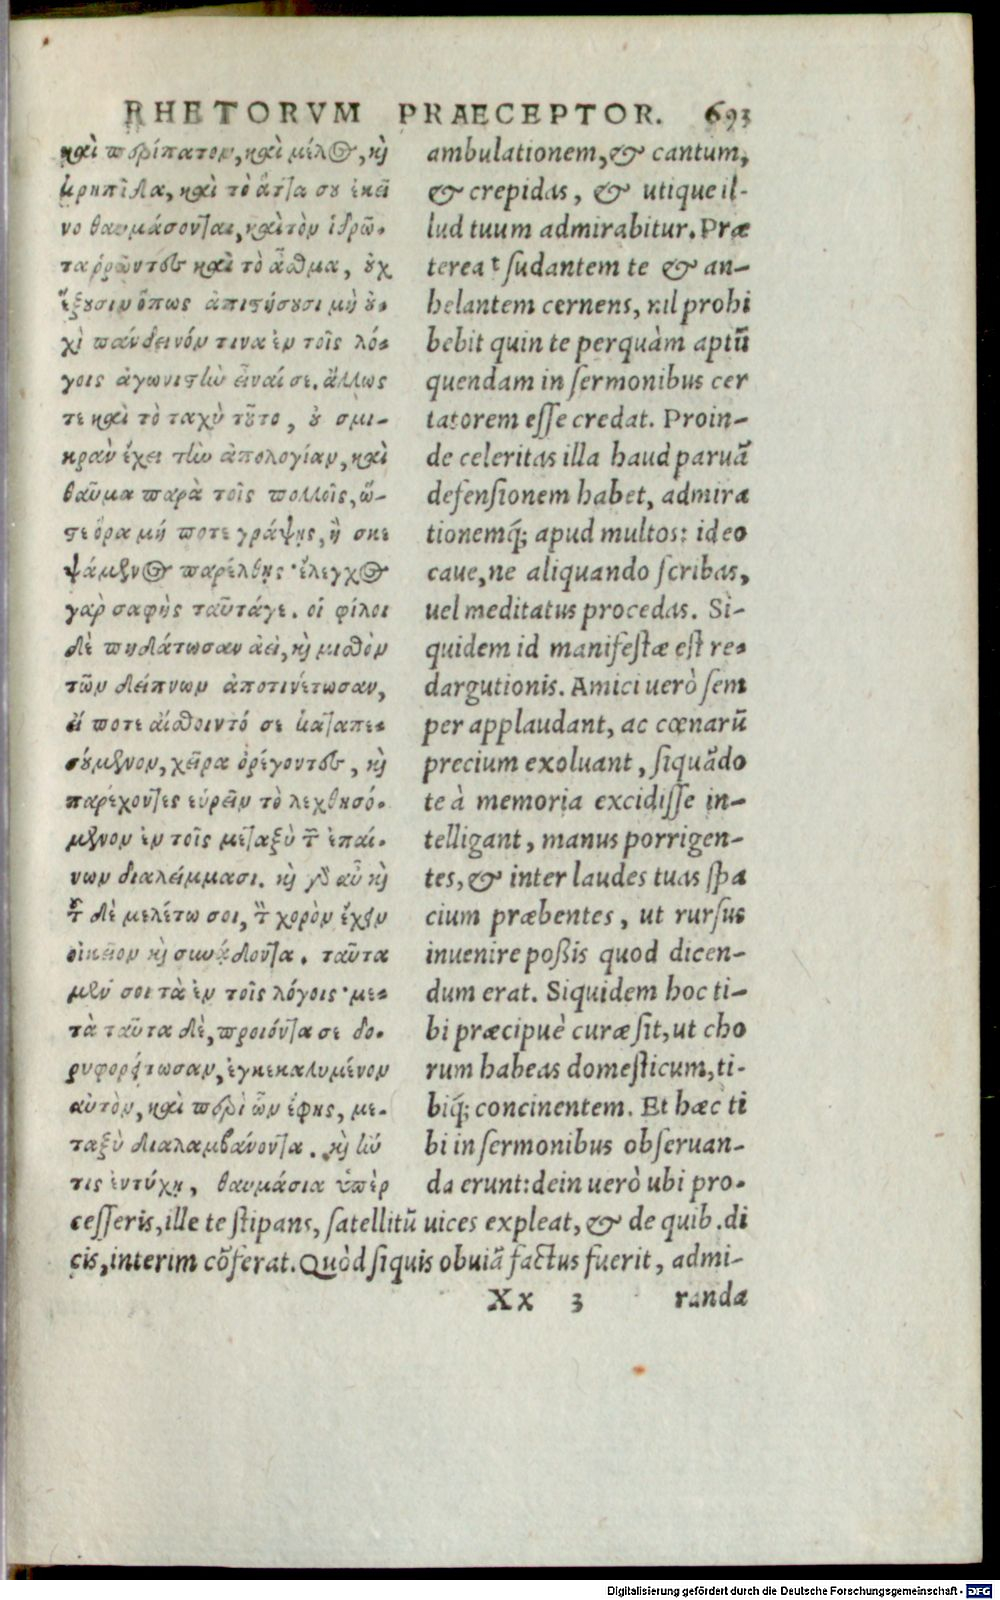 RHETORVM PRAECEPTOR. 693
καὶ περίπατον, καὶ μέλος, κỳ
κρηπῖδα, καὶ τὸ ἄττα σου ἐκεῖ
νο θαυμάσονται, καὶ τὸν ἱδρῶ-
τα ὁρῶντες καὶ τὸ ἆσθμα, οὐχ
ἕξουσιν ὅπως ἀπιστήσουσι μὴ οὐ-
χὶ πάνδεινόν τινα ἐν τοῖς λό-
γοις ἀγωνιστὴν εἶναί σε. ἄλλως
τε καὶ τὸ ταχὺ τοῦτο, οὐ σμι-
κρὰν ἔχει τὴν ἀπολογίαν, καὶ
θαῦμα παρὰ τοῖς πολλοῖς, ὥ-
στε ὅρα μή ποτε γράψῃς, ἢ σκε
ψάμενος παρέλθῃς· ἔλεγχος
γὰρ σαφὴς ταῦτάγε. οἱ φίλοι
δὲ πηδάτωσαν ἀεὶ, κỳ μισθὸν
τῶν δείπνων ἀποτινέτωσαν,
εἴ ποτε αἴσθοιντό σε καταπε-
σούμενον, χεῖρα ὀρέγοντες, κỳ
παρέχοντες εὑρεῖν τὸ λεχθησό-
μενον ἐν τοῖς μεταξὺ τῶν ἐπαί-
νων διαλείμμασι. κỳ γὰρ αὖ κỳ
τόδε μελέτω σοι, τὸν χορὸν ἔχειν
οἰκεῖον κỳ συνᾴδοντα. ταῦτα
μέν σοι τὰ ἐν τοῖς λόγοις· με-
τὰ ταῦτα δὲ, προιόντα σε δο-
ρυφορείτωσαν, ἐγκεκαλυμένον
αὐτὸν, καὶ περὶ ὧν ἔφης, με-
ταξὺ διαλαμβάνοντα. κỳ ἤν
τις ἐντύχῃ, θαυμάσια ὑπὲρ
ambulationem, & cantum,
& crepidas, & utique il-
lud tuum admirabitur. Præ
terea sudantem te & an-
helantem cernens, nil prohi
bebit quin te perquàm aptū
quendam in sermonibus cer
tatorem esse credat. Proin-
de celeritas illa haud paruā
defensionem habet, admira
tionemq́; apud multos: ideo
caue, ne aliquando scribas,
uel meditatus procedas. Si-
quidem id manifestæ est re-
dargutionis. Amici uerò sem
per applaudant, ac cœnarū
precium exoluant, siquādo
te à memoria excidisse in-
telligant, manus porrigen-
tes, & inter laudes tuas spa
cium præbentes, ut rursus
inuenire poßis quod dicen-
dum erat. Siquidem hoc ti-
bi præcipuè curæ sit, ut cho
rum habeas domesticum, ti-
biq́; concinentem. Et hæc ti
bi in sermonibus obseruan-
da erunt: dein uerò ubi pro-
cesseris, ille te stipans, satellitū uices expleat, & de quib. di
cis, interim cōferat. Quòd siquis obuiā factus fuerit, admi-
Xx 3 randa
Digitalisierung gefördert durch die Deutsche Forschungsgemeinschaft - DFG